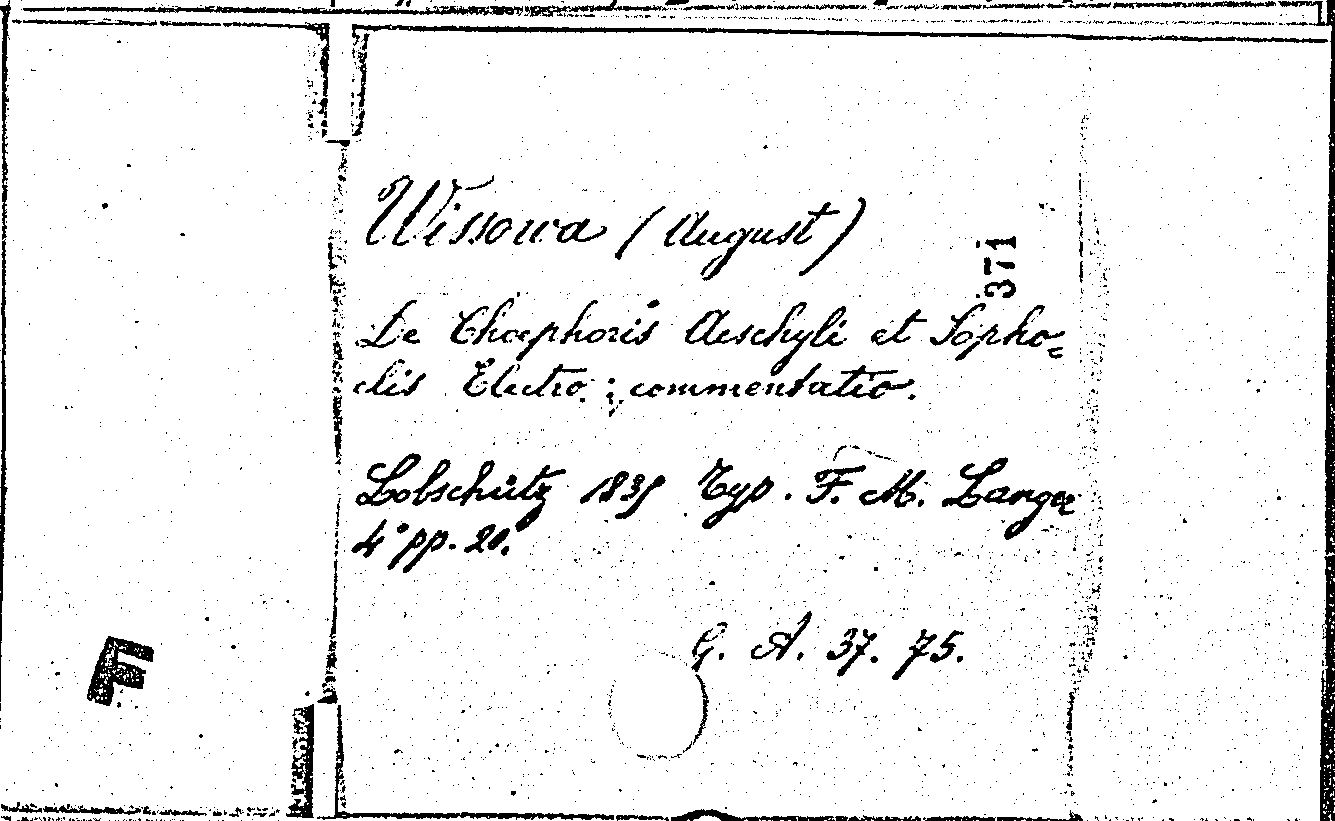 Wissowa (August)
371
De Choephoris Aeschyli et Sopho=
clis Electra: commentatio.
Lobschütz 1835 Typ. F. M. Langer
4° pp. 20.
G. A. 37. 75.
F